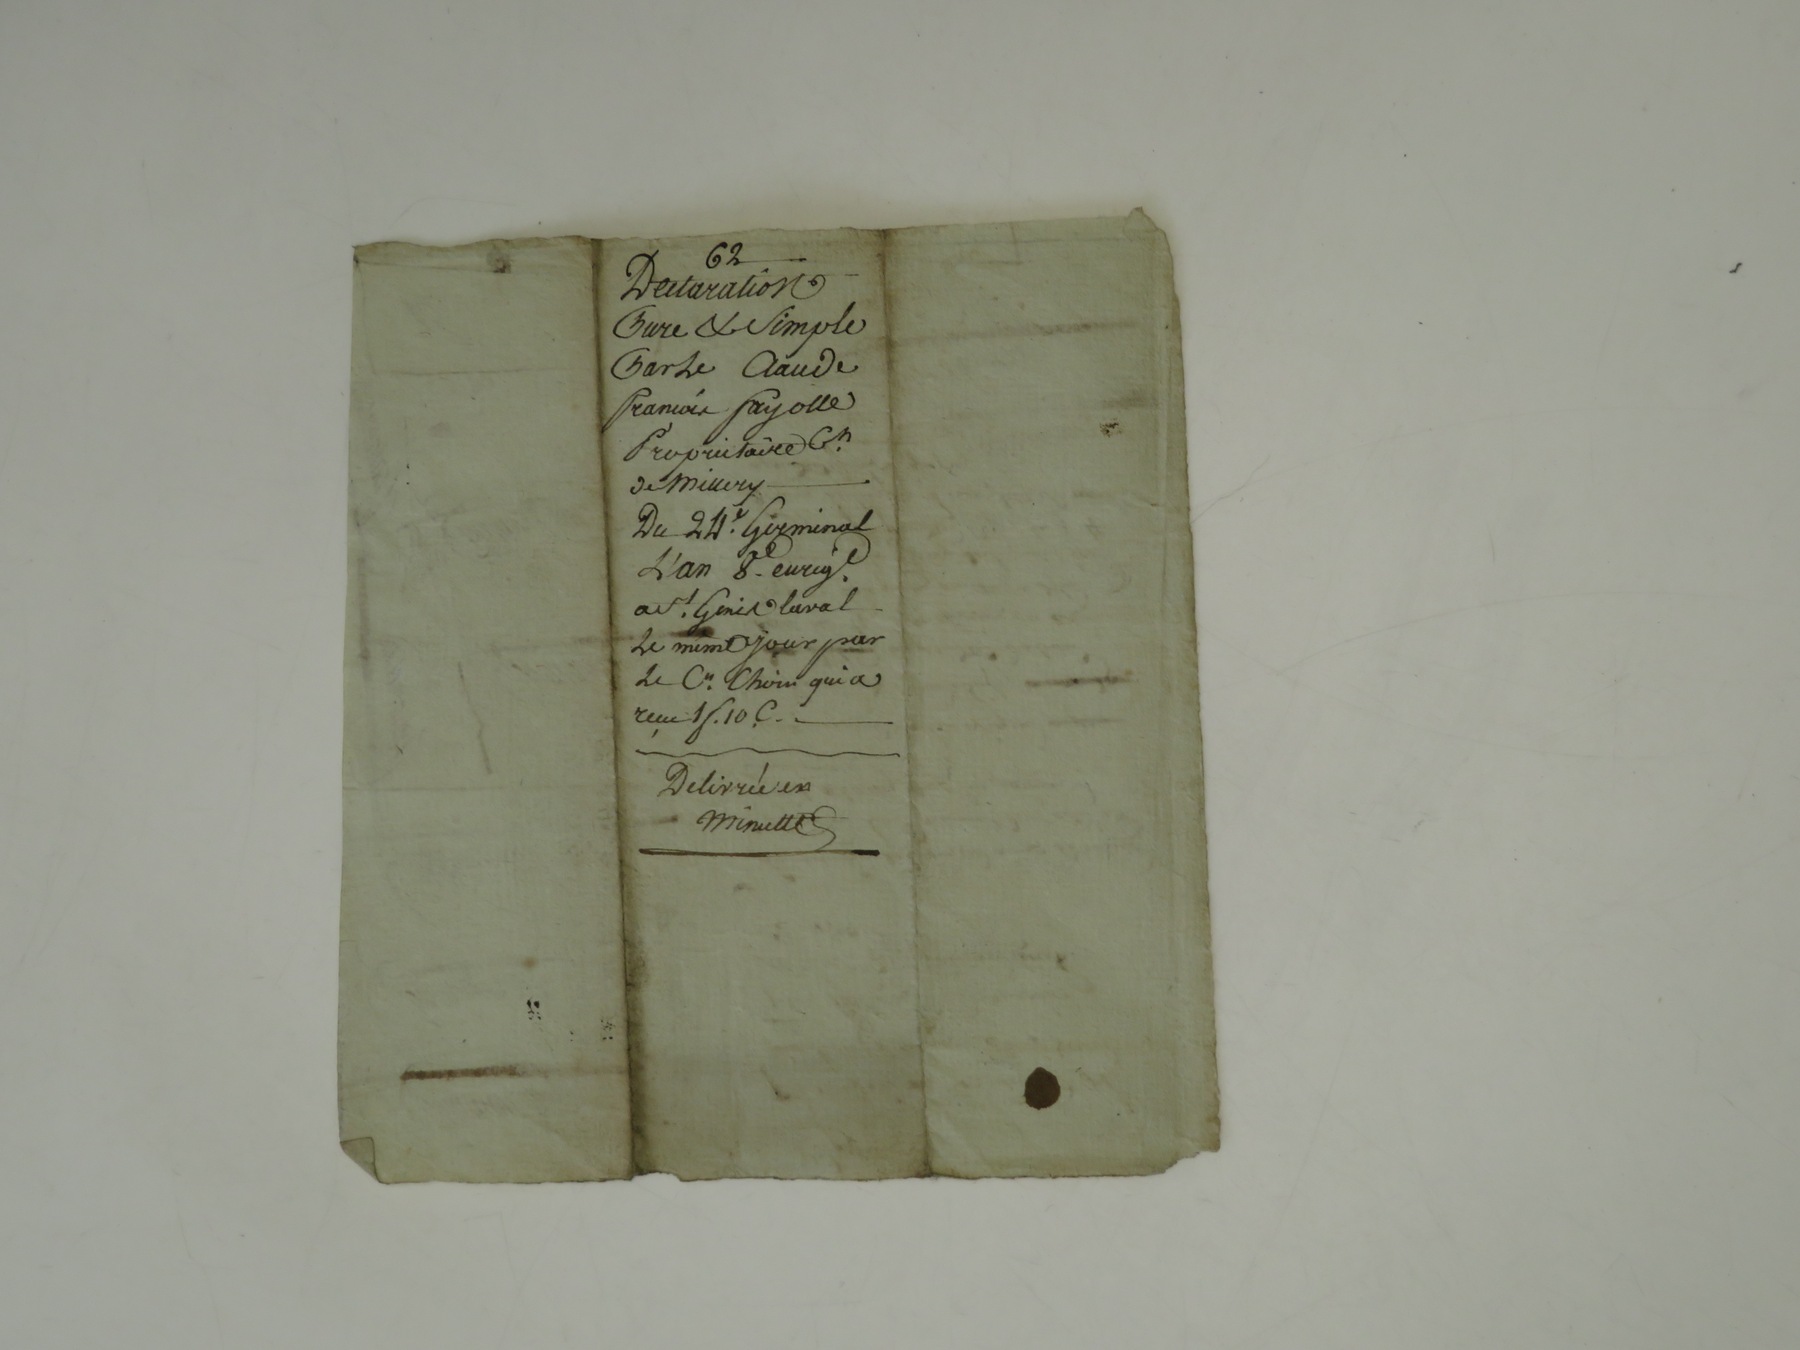 62
Declaration
Pure & Simple
Par Le Claude
francois fayolle
Proprietaire Cn.
de Millery
Du 24e. Germinal
L'an 8e. enregé.
a St. Genis laval
Le même jour par
Le Cn. Choin qui a
reçu 1f. 10 C.
Delivrée en
Minutte